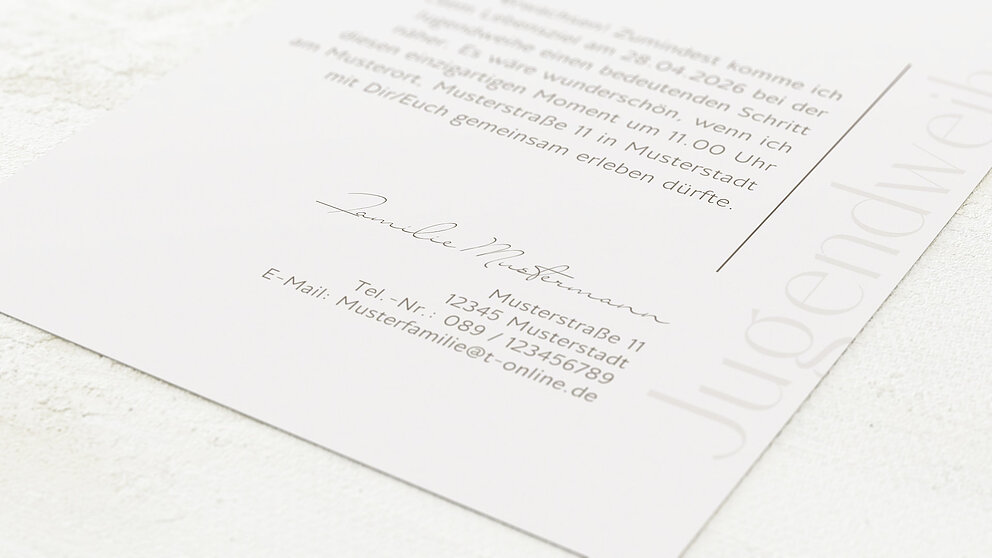 Erwachsen! Zumindest komme ich
dem Lebensziel am 28.04.2026 bei der
Jugendweihe einen bedeutenden Schritt
näher. Es wäre wunderschön, wenn ich
diesen einzigartigen Moment um 11.00 Uhr
am Musterort, Musterstraße 11 in Musterstadt
mit Dir/Euch gemeinsam erleben dürfte.
Familie Mustermann
Musterstraße 11
12345 Musterstadt
Tel.-Nr.: 089 / 123456789
E-Mail: Musterfamilie@t-online.de
Jugendweih